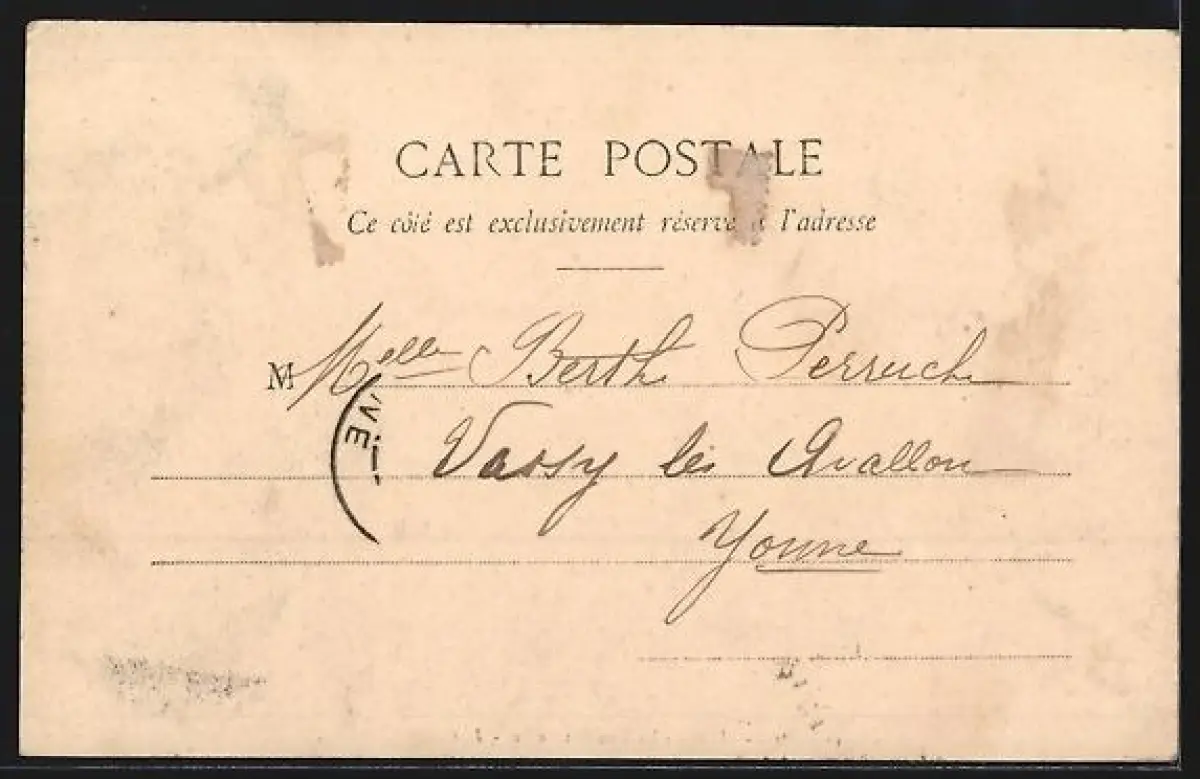 CARTE POSTALE
Ce côté est exclusivement réservé à l'adresse
M Melle Berthe Perruche
Vassy lès Avallon
Yonne
VE